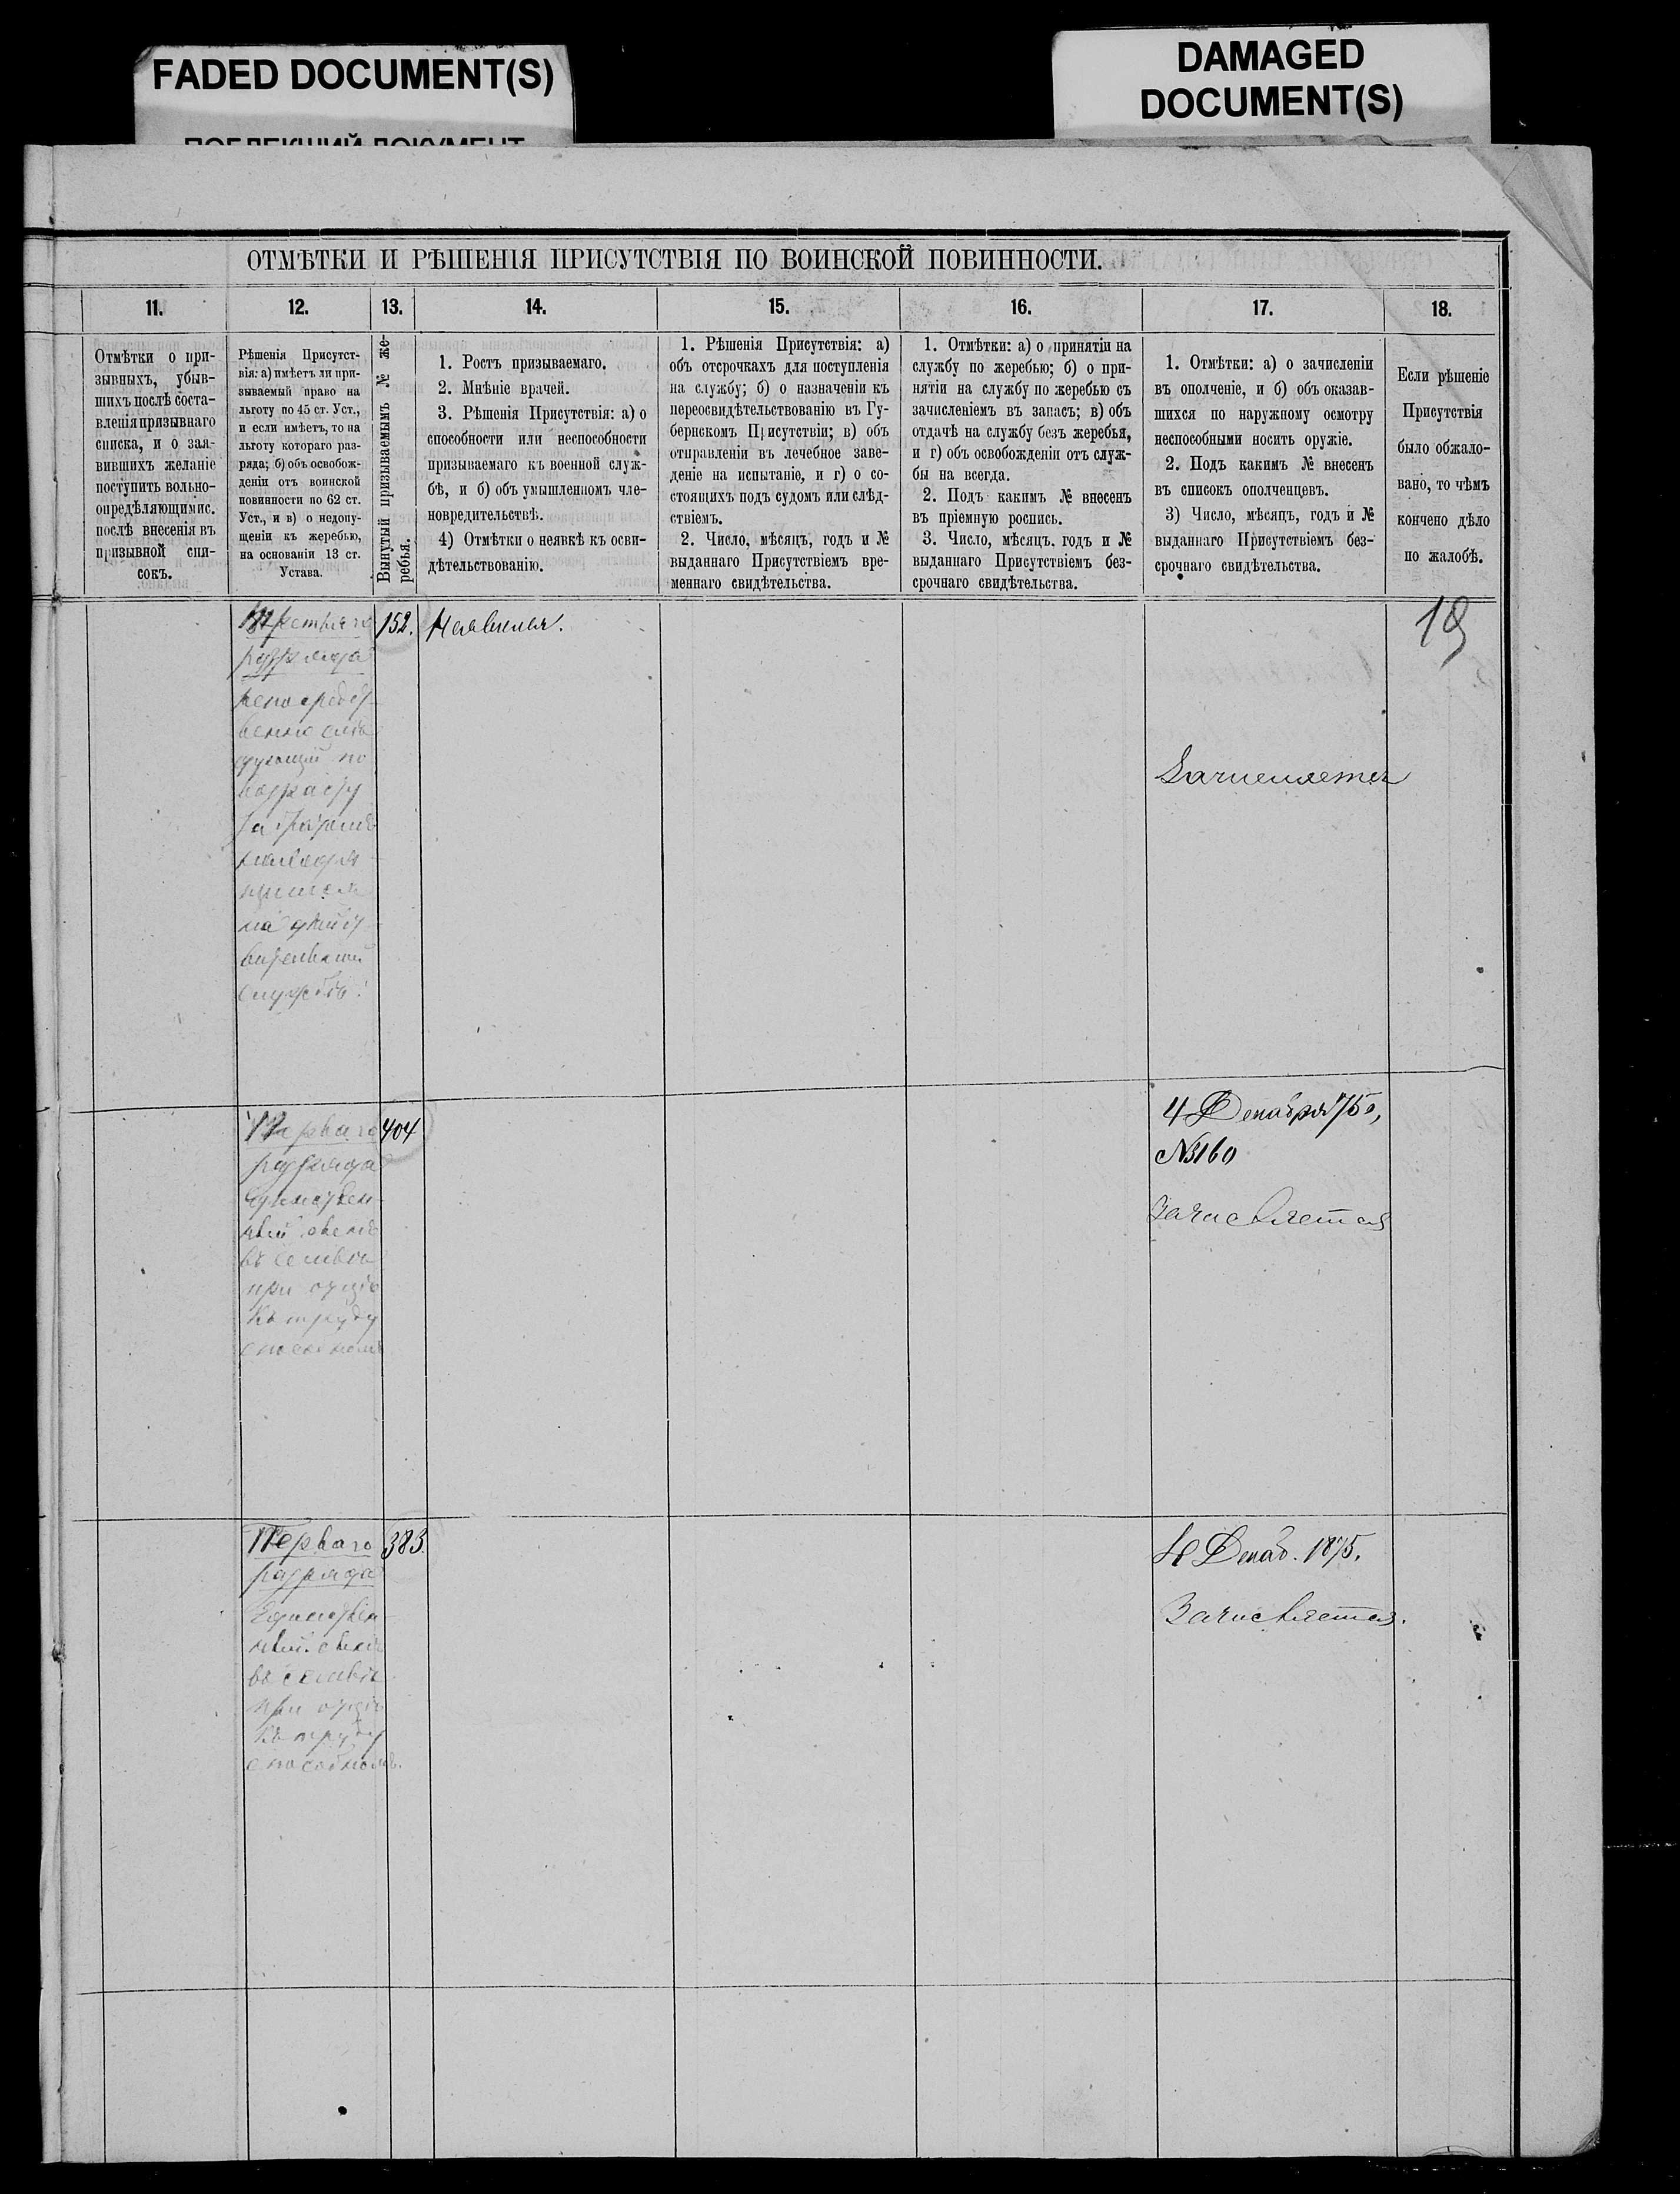 FADED DOCUMENT(S)
DAMAGED
DOCUMENT(S)
ПОБЛЕКШИЙ ДОКУМЕНТ
ОТМѢТКИ И РѢШЕНІЯ ПРИСУТСТВІЯ ПО ВОИНСКОЙ ПОВИННОСТИ.
11.
12.
13.
14.
15.
16.
17.
18.
Отмѣтки о при-
зывныхъ, убыв-
шихъ послѣ соста-
вленія призывнаго
списка, и о зая-
вившихъ желаніе
поступить вольно-
опредѣляющимис.
послѣ внесенія въ
призывной спи-
сокъ.
Рѣшенія Присутст-
вія: а) имѣетъ ли при-
зываемый право на
льготу по 45 ст. Уст.,
и если имѣетъ, то на
льготу котораго раз-
ряда; б) объ освобож-
деніи отъ воинской
повинности по 62 ст.
Уст., и в) о недопу-
щеніи къ жеребью,
на основаніи 13 ст.
Устава.
Вынутый призываемымъ № же-
ребья.
1. Ростъ призываемаго.
2. Мнѣніе врачей.
3. Рѣшенія Присутствія: а) о
способности или неспособности
призываемаго къ военной служ-
бѣ, и б) объ умышленномъ чле-
новредительствѣ.
4) Отмѣтки о неявкѣ къ осви-
дѣтельствованію.
1. Рѣшенія Присутствія: а)
объ отсрочкахъ для поступленія
на службу; б) о назначеніи къ
переосвидѣтельствованію въ Гу-
бернскомъ Присутствіи; в) объ
отправленіи въ лечебное заве-
деніе на испытаніе, и г) о со-
стоящихъ подъ судомъ или слѣд-
ствіемъ.
2. Число, мѣсяцъ, годъ и №
выданнаго Присутствіемъ вре-
меннаго свидѣтельства.
1. Отмѣтки: а) о принятіи на
службу по жеребью; б) о при-
нятіи на службу по жеребью съ
зачисленіемъ въ запасъ; в) объ
отдачѣ на службу безъ жеребья,
и г) объ освобожденіи отъ служ-
бы на всегда.
2. Подъ какимъ № внесенъ
въ пріемную роспись.
3. Число, мѣсяцъ, годъ и №
выданнаго Присутствіемъ без-
срочнаго свидѣтельства.
1. Отмѣтки: а) о зачисленіи
въ ополченіе, и б) объ оказав-
шихся по наружному осмотру
неспособными носить оружіе.
2. Подъ какимъ № внесенъ
въ списокъ ополченцевъ.
3) Число, мѣсяцъ, годъ и №
выданнаго Присутствіемъ без-
срочнаго свидѣтельства.
Если рѣшеніе
Присутствія
было обжало-
вано, то чѣмъ
кончено дѣло
по жалобѣ.
Третьяго
разряда
непосредст-
венно слѣ
дующій по
возрасту
за братомъ
находя
щимся
на дѣйст
вительной
службѣ.
152.
Неявился.
Зачисляется
19
Перваго
разряда
Единствен-
ный сынъ
въ семьѣ
при отцѣ
къ труду
способномъ
404
4 Декабря 75 г,
№3160
Зачисляется
Перваго
разряда
Единствен
ный сынъ
въ семьѣ
при отцѣ
къ труду
способномъ.
383.
4 Декаб. 1875.
Зачисляется.